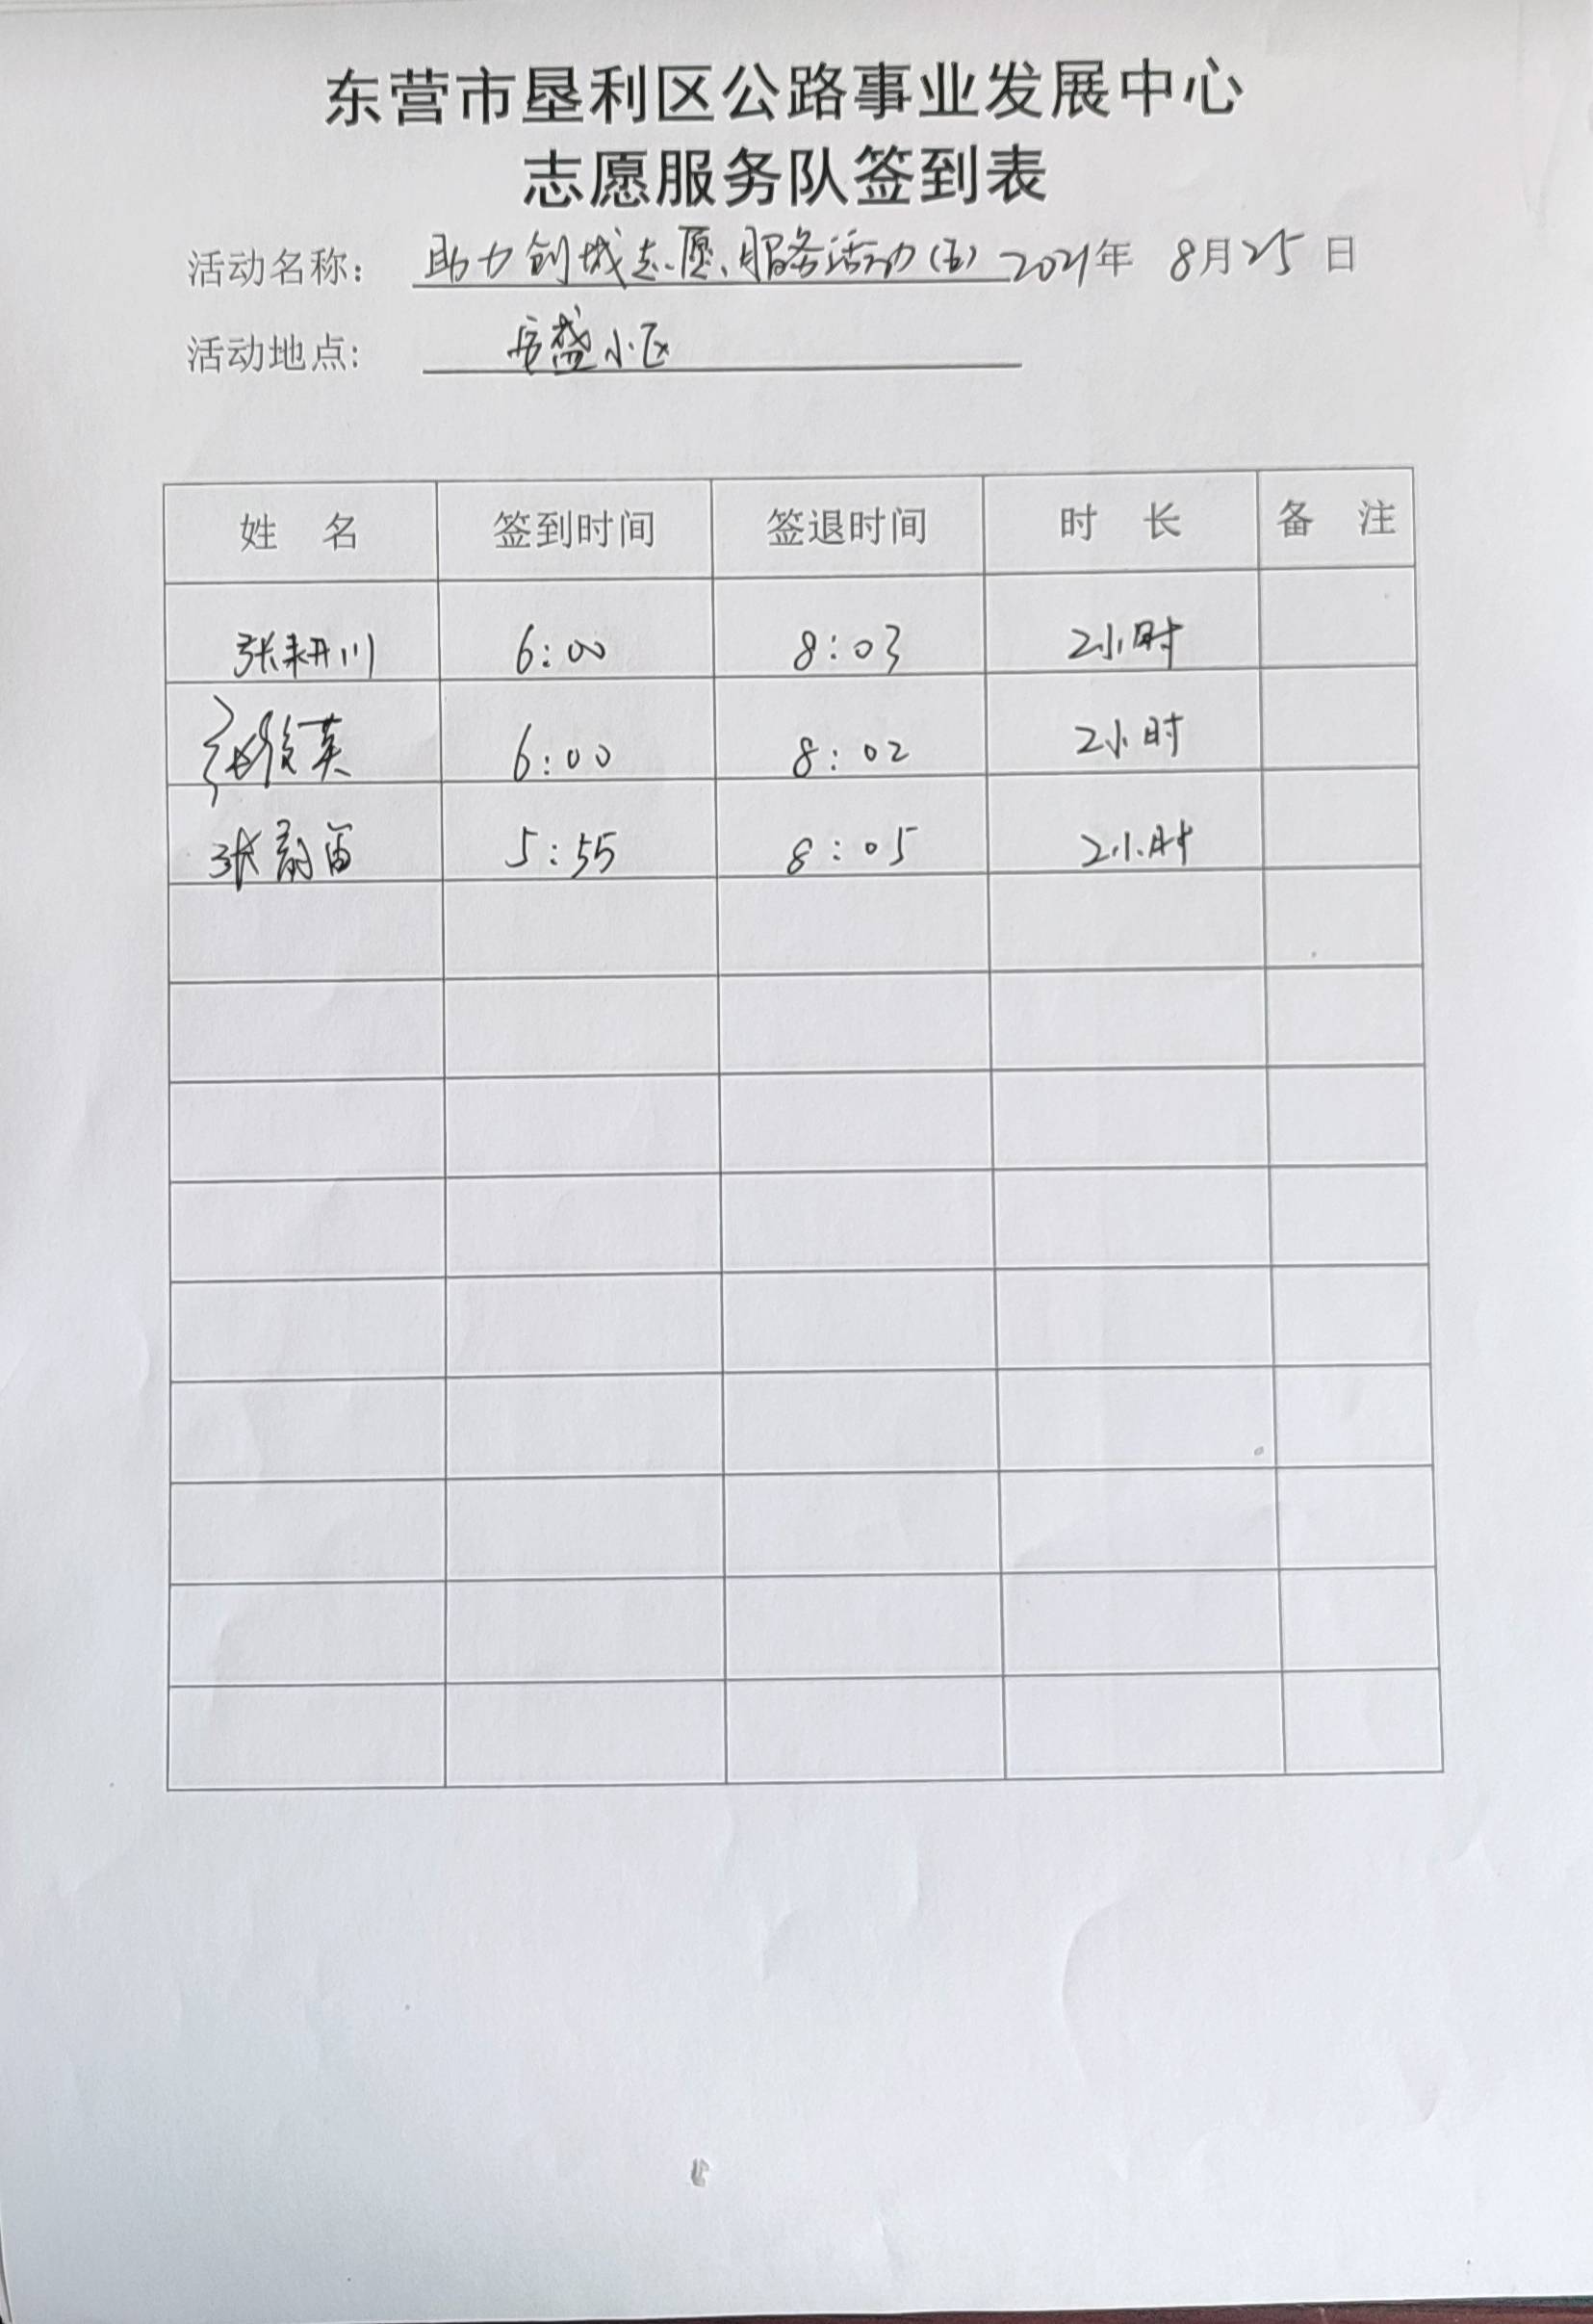 东营市垦利区公路事业发展中心
志愿服务队签到表
活动名称： 助力创城志愿服务活动（五） 2021年 8月25日
活动地点： 盛小区
姓 名 签到时间 签退时间 时 长 备 注
张耕川 6:00 8:03 2小时
英 6:00 8:02 2小时
张 5:55 8:05 2小时